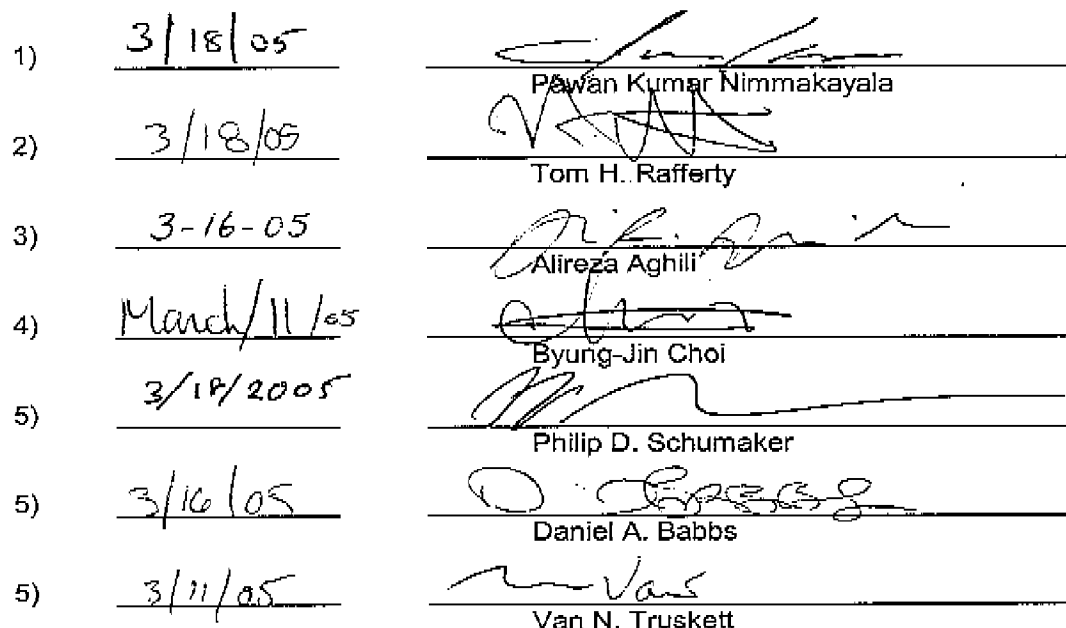 1) 3/18/05
Pawan Kumar Nimmakayala
2) 3/18/05
Tom H. Rafferty
3) 3-16-05
Alireza Aghili
4) March/11/05
Byung-Jin Choi
5) 3/18/2005
Philip D. Schumaker
5) 3/16/05
Daniel A. Babbs
5) 3/11/05 Van
Van N. Truskett